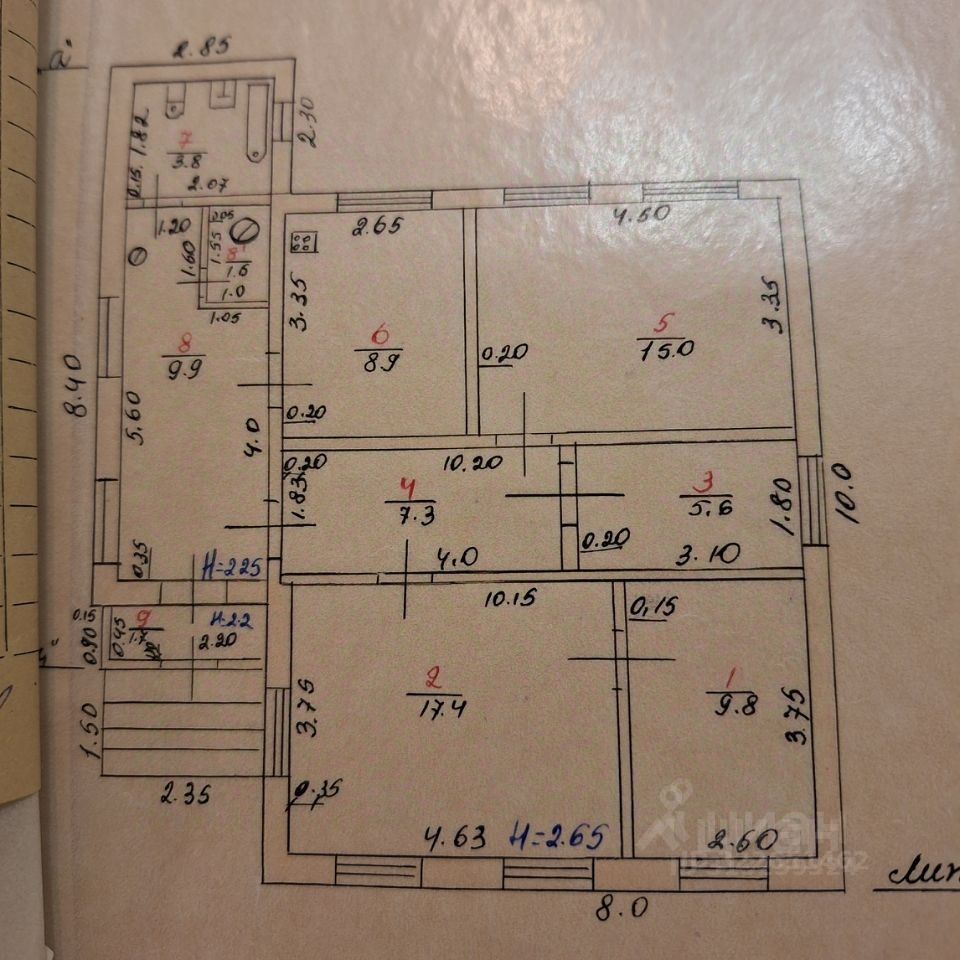 2.85
7
3.8
1.82
2.07
0.15
2.30
1.20
1.60
1.55
8'
1.6
1.0
1.05
2.65
4.50
3.35
3.35
6
8.9
5
15.0
0.20
8
9.9
8.40
5.60
4.0
0.20
0.20
10.20
1.83
4
7.3
4.0
3
5.6
1.80
10.0
0.20
3.10
0.35
H=225
10.15
0,15
0.15
9
1.7
H=2.2
0.90
0.45
2.20
2
17.4
1
9.8
3.75
3.75
1.50
2.35
0.35
4.63
H=2.65
2.60
8.0